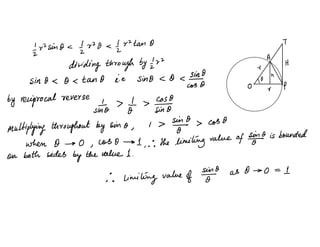 ½ r² sin θ < ½ r² θ < ½ r² tan θ
dividing through by ½ r²
sin θ < θ < tan θ i.e sin θ < θ < sin θ / cos θ
by reciprocal reverse 1/sin θ > 1/θ > cos θ/sin θ
Multiplying throughout by sin θ, 1 > sin θ/θ > cos θ
when θ → 0, cos θ → 1, ∴ the limiting value of sin θ/θ is bounded
on both sides by the value 1.
∴ Limiting value of sin θ/θ as θ → 0 = 1
T
A
H
r
h
θ
O
r
P